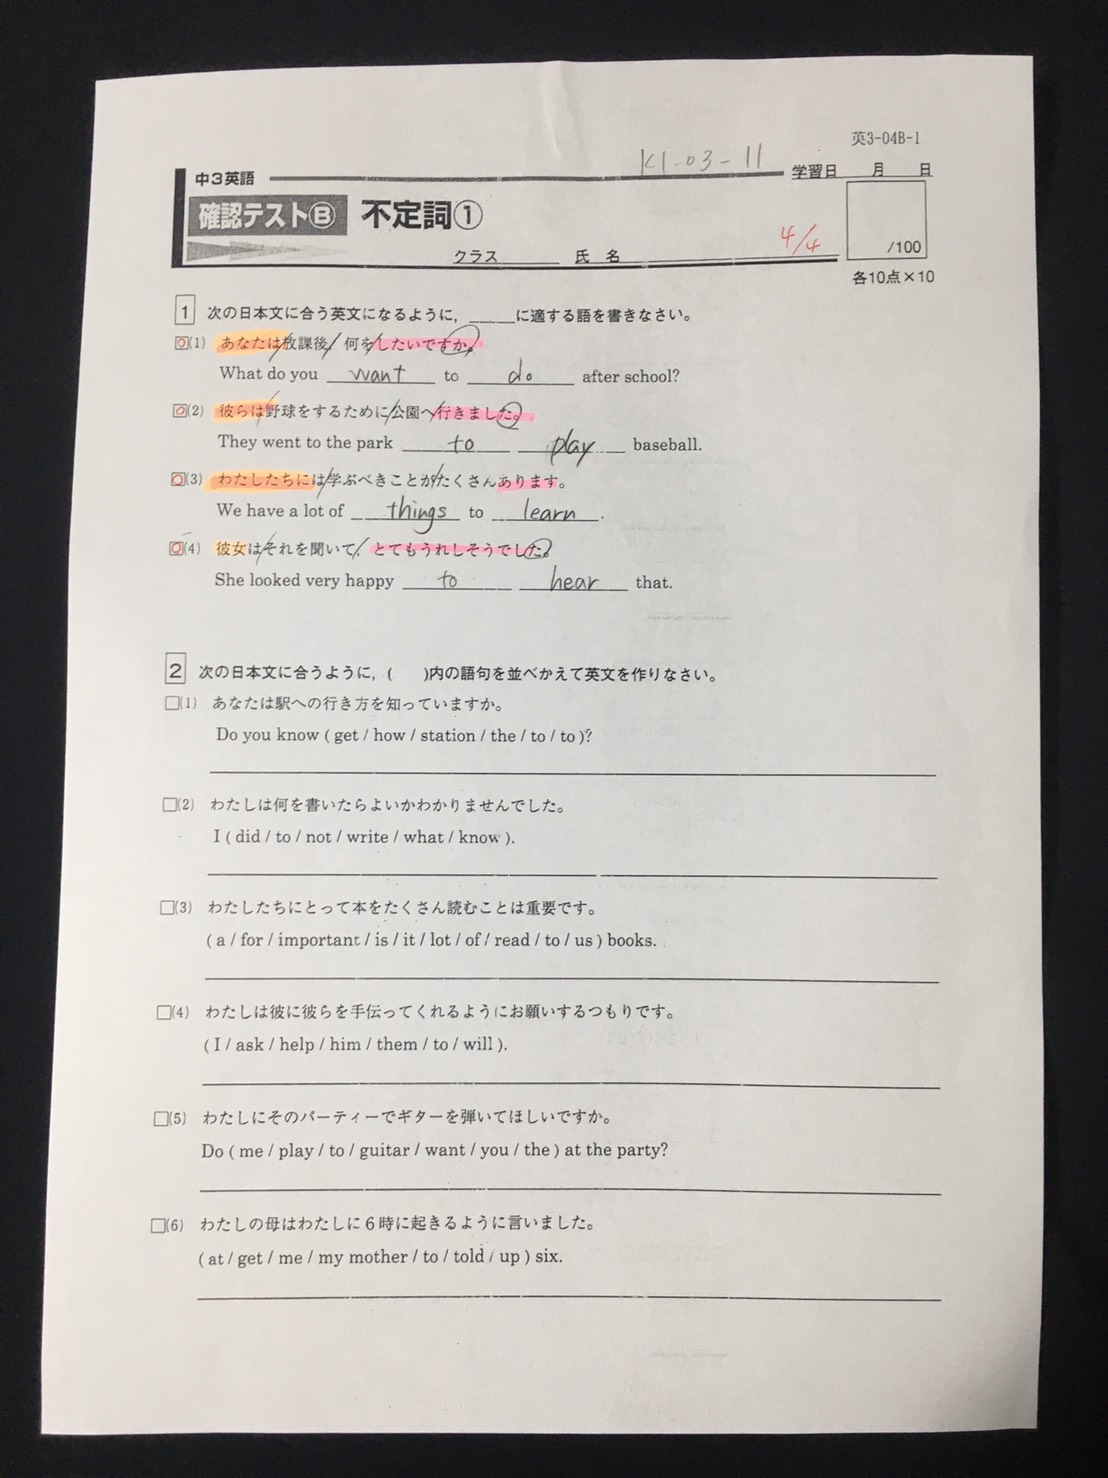 英3-04B-1
K1-03-11
中3英語
学習日 月 日
確認テストⒷ 不定詞①
4/4
/100
クラス 氏名
各10点×10
1 次の日本文に合う英文になるように，_____に適する語を書きなさい。
(1) あなたは放課後，何をしたいですか。
What do you want to do after school?
(2) 彼らは野球をするために公園へ行きました。
They went to the park to play baseball.
(3) わたしたちには学ぶべきことがたくさんあります。
We have a lot of things to learn.
(4) 彼女はそれを聞いて，とてもうれしそうでした。
She looked very happy to hear that.
2 次の日本文に合うように，( )内の語句を並べかえて英文を作りなさい。
□(1) あなたは駅への行き方を知っていますか。
Do you know ( get / how / station / the / to / to )?
□(2) わたしは何を書いたらよいかわかりませんでした。
I ( did / to / not / write / what / know ).
□(3) わたしたちにとって本をたくさん読むことは重要です。
( a / for / important / is / it / lot / of / read / to / us ) books.
□(4) わたしは彼に彼らを手伝ってくれるようにお願いするつもりです。
( I / ask / help / him / them / to / will ).
□(5) わたしにそのパーティーでギターを弾いてほしいですか。
Do ( me / play / to / guitar / want / you / the ) at the party?
□(6) わたしの母はわたしに6時に起きるように言いました。
( at / get / me / my mother / to / told / up ) six.